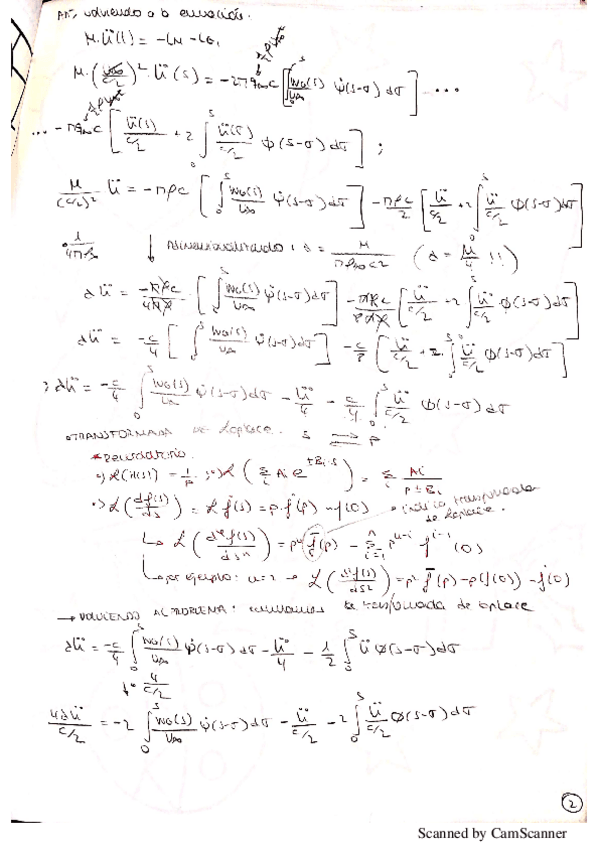 Así, volviendo a la ecuación:
M·ü(t) = -LN - LG₁
M·(U∞/(c/2))²·ü(s) = -2πq∞c [∫₀ˢ w₀(s)/U∞ ψ̇(s-σ)dσ] ...
... -πq∞c [ü(s)/(c/2) + 2∫₀ˢ ü(σ)/(c/2) φ(s-σ)dσ] ;
M/(c/2)² ü = -πρc [∫₀ˢ w₀(s)/U∞ ψ̇(s-σ)dσ] - πρc/2 [ü/(c/2) + 2∫₀ˢ ü/(c/2) φ(s-σ)dσ]
↓ (λ = μ/4 !!)
λü = -πρc/ · [∫₀ˢ w₀(s)/U∞ ψ̇(s-σ)dσ] - [ü/(c/2) + 2∫₀ˢ ü/(c/2) φ(s-σ)dσ]
λü = -c/4 [∫₀ˢ w₀(s)/U∞ ψ̇(s-σ)dσ] - c/8 [ü/(c/2) + 2·∫₀ˢ ü/(c/2) φ(s-σ)dσ]
λü = -c/4 ∫₀ˢ w₀(s)/U∞ ψ̇(s-σ)dσ - ü/4 - c/4 ∫₀ˢ ü/(c/2) φ(s-σ)dσ
TRANSFORMADA DE Laplace. s ⇌ p
*Recordatorio:
·) L(1(s)) = 1/p ; ·) L(Σᵢ Aᵢ e^(±Bᵢ·s)) = Σᵢ Aᵢ/(p±Bᵢ)
·) L(df(s)/ds) = L ḟ(s) = p·f̄(p) - f(0) · indica transformada
de Laplace.
↳ L(dⁿf(s)/dsⁿ) = pⁿ f̄(p) - Σᵢ₌₁ⁿ pⁿ⁻ⁱ fⁱ⁻¹(0)
↳ por ejemplo: n=2 → L(d²f(s)/ds²) = p² f̄(p) - p(f(0)) - ḟ(0)
→ VOLVIENDO AL PROBLEMA: la transformada de Laplace
λü = -c/4 ∫₀ˢ w₀(s)/U∞ ψ̇(s-σ)dσ - ü/4 - 1/2 ∫₀ˢ ü φ(s-σ)dσ
↓· 4/(c/2)
4λü/(c/2) = -2 ∫₀ˢ w₀(s)/U∞ ψ̇(s-σ)dσ - ü/(c/2) - 2∫₀ˢ ü/(c/2) φ(s-σ)dσ
2
Scanned by CamScanner